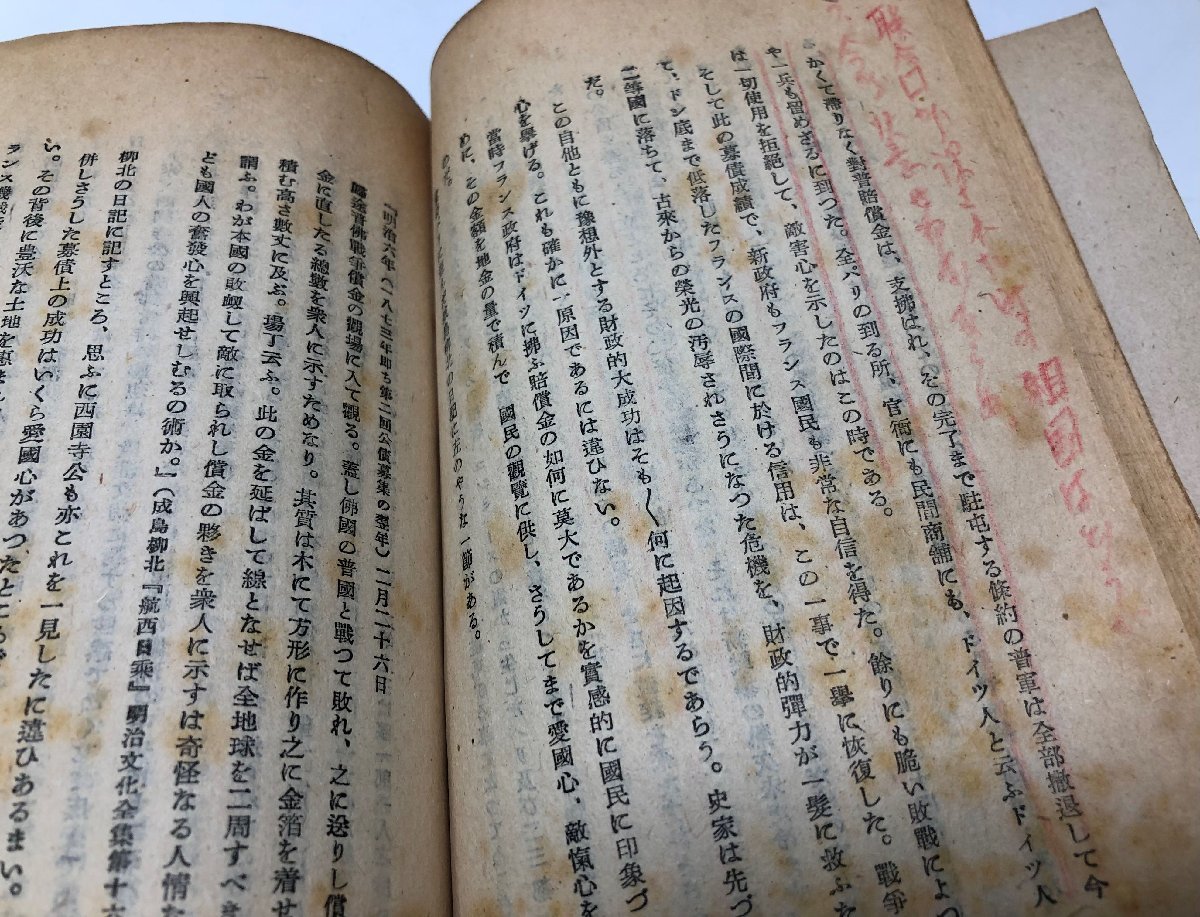 かくて滯りなく對普賠償金は、支拂はれ、その完了まで駐屯する條約の普軍は全部撤退して今
や一兵も留めざるに到つた。全パリの到る所、官衙にも民間商舖にも、ドイツ人と云ふドイツ人
は一切使用を拒絕して、敵害心を示したのはこの時である。
そして此の募債成績で、新政府もフランス國民も非常な自信を得た。餘りにも脆い敗戰によつ
て、ドン底まで低落したフランスの國際間に於ける信用は、この一事で一擧に恢復した。戰爭
二等國に落ちて、古來からの榮光の汚辱されさうになつた危機を、財政的彈力が一髮に救ふた
だ。
この自他ともに豫想外とする財政的大成功はそも〱何に起因するであらう。史家は先づ
心を擧げる。これも確かに一原因であるには違ひない。
當時フランス政府はドイツに拂ふ賠償金の如何に莫大であるかを實感的に國民に印象づ
めに、その金額を地金の量で積んで 國民の觀覽に供し、さうしてまで愛國心、敵愾心を
のやうな一節がある。
『明治六年(一八七三年卽ち第二回公債募集の翌年)二月二十六日
歸途普佛戰爭償金の觀場に入て觀る。蓋し佛國の普國と戰つて敗れ、之に送りし償
金に直したる總數を衆人に示すためなり。其質は木にて方形に作り之に金箔を着せ
積む高さ數丈に及ぶ。場丁云ふ。此の金を延ばして線となせば全地球を二周すべき
謂ふ。わが本國の敗衄して敵に取られし償金の夥きを衆人に示すは奇怪なる人情な
ども國人の奮發心を興起せしむるの術か。』(成島柳北『航西日乘』明治文化全集第十六
柳北の日記に記すところ、思ふに西園寺公も亦これを一見したに違ひあるまい。
併しさうした募債上の成功はいくら愛國心があつたところで
い。その背後に豊沃な土地を惠まれ